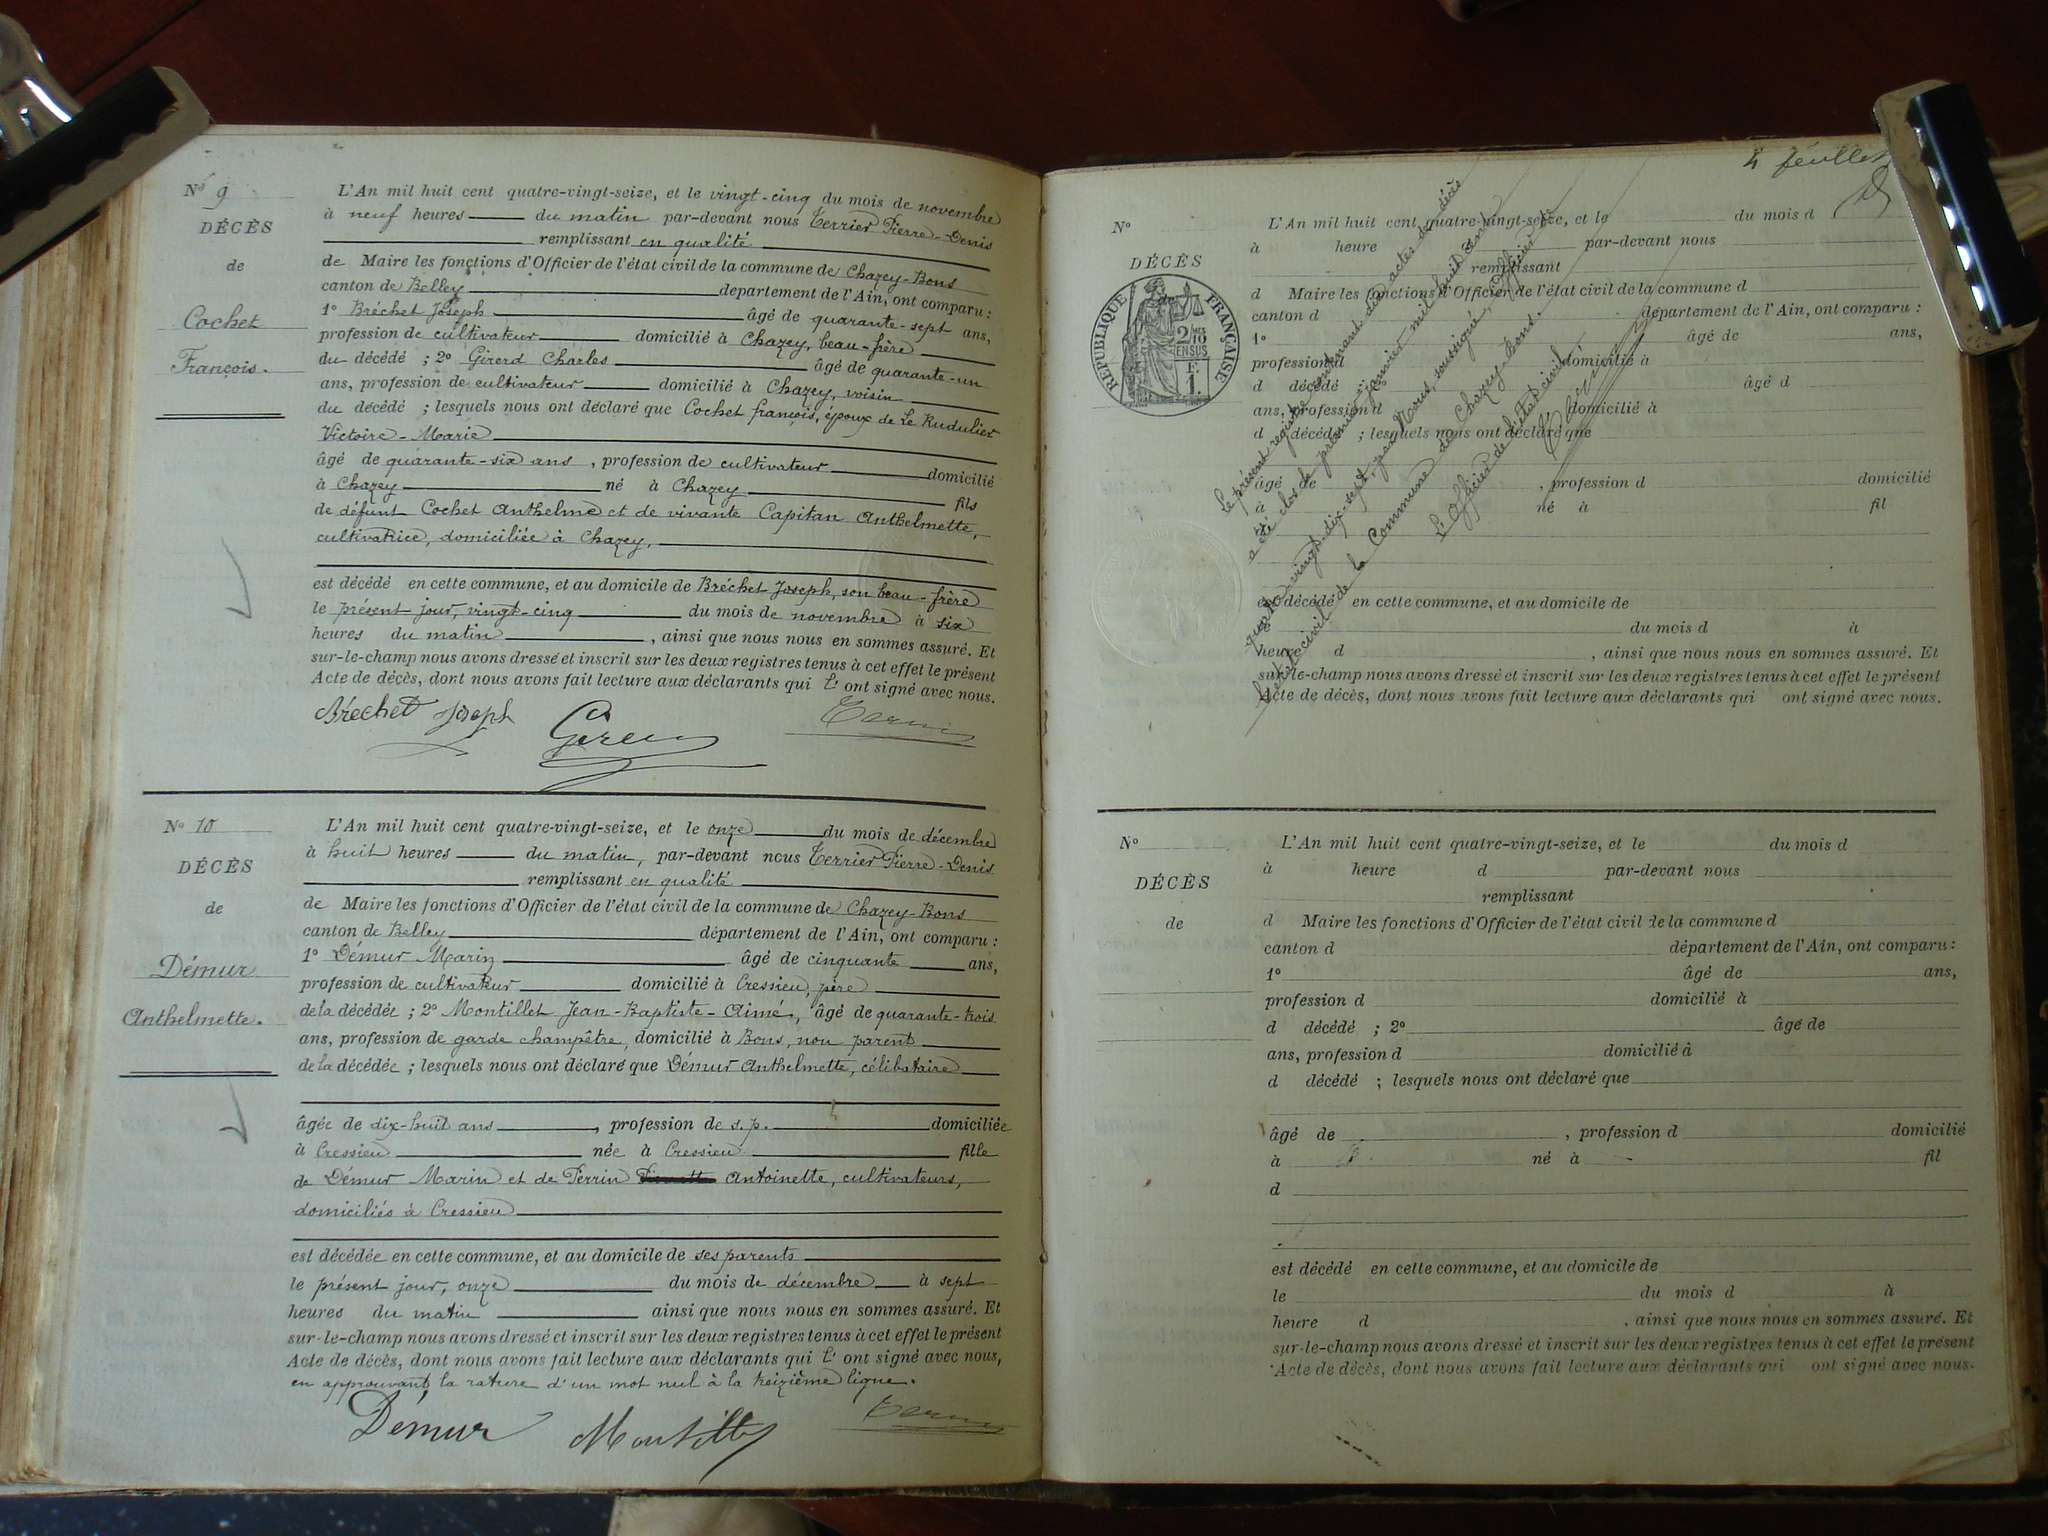 No 9
DÉCÈS
de
Cochet
François.
L'An mil huit cent quatre-vingt-seize, et le vingt-cinq du mois de novembre
à neuf heures du matin par-devant nous Terrier Pierre-Denis
remplissant en qualité
de Maire les fonctions d'Officier de l'état civil de la commune de Chazey-Bons
canton de Belley département de l'Ain, ont comparu :
1° Bréchet Joseph âgé de quarante-sept ans,
profession de cultivateur domicilié à Chazey, beau-frère
du décédé ; 2° Girerd Charles âgé de quarante-un
ans, profession de cultivateur domicilié à Chazey, voisin
du décédé ; lesquels nous ont déclaré que Cochet françois, époux de Le Rudulier
Victoire-Marie
âgé de quarante-six ans, profession de cultivateur domicilié
à Chazey né à Chazey fils
de défunt Cochet Anthelme et de vivante Capitan Anthelmette,
cultivatrice, domiciliée à Chazey,
est décédé en cette commune, et au domicile de Bréchet Joseph, son beau-frère
le présent jour, vingt-cinq du mois de novembre à six
heures du matin, ainsi que nous nous en sommes assuré. Et
sur-le-champ nous avons dressé et inscrit sur les deux registres tenus à cet effet le présent
Acte de décès, dont nous avons fait lecture aux déclarants qui l' ont signé avec nous.
Bréchet Joseph
No 10
DÉCÈS
de
Démur
Anthelmette.
L'An mil huit cent quatre-vingt-seize, et le onze du mois de décembre
à huit heures du matin, par-devant nous Terrier Pierre-Denis
remplissant en qualité
de Maire les fonctions d'Officier de l'état civil de la commune de Chazey-Bons
canton de Belley département de l'Ain, ont comparu :
1° Démur Marin âgé de cinquante ans,
profession de cultivateur domicilié à Cressieu, père
de la décédée ; 2° Montillet Jean-Baptiste-Aimé, âgé de quarante-trois
ans, profession de garde champêtre, domicilié à Bons, non parent
de la décédée ; lesquels nous ont déclaré que Démur Anthelmette, célibataire
âgée de dix-huit ans, profession de s.p. domiciliée
à Cressieu née à Cressieu fille
de Démur Marin et de Perrin Antoinette, cultivateurs,
domiciliés à Cressieu
est décédée en cette commune, et au domicile de ses parents
le présent jour, onze du mois de décembre à sept
heures du matin ainsi que nous nous en sommes assuré. Et
sur-le-champ nous avons dressé et inscrit sur les deux registres tenus à cet effet le présent
Acte de décès, dont nous avons fait lecture aux déclarants qui l' ont signé avec nous,
en approuvant la rature d'un mot nul à la treizième ligne.
Démur Montillet
4 feuillet
No
DÉCÈS
RÉPUBLIQUE FRANÇAISE
2/10 EN SUS
F. 1.
L'An mil huit cent quatre-vingt-seize, et le du mois d
à heure par-devant nous
remplissant
d Maire les fonctions d'Officier de l'état civil de la commune d
canton d département de l'Ain, ont comparu :
1° âgé de ans,
profession d domicilié à
d décédé ; âgé d
ans, profession d domicilié à
d décédé ; lesquels nous ont déclaré que
âgé de , profession d domicilié
à né à fil
est décédé en cette commune, et au domicile de
du mois d à
heure d , ainsi que nous nous en sommes assuré. Et
sur-le-champ nous avons dressé et inscrit sur les deux registres tenus à cet effet le présent
Acte de décès, dont nous avons fait lecture aux déclarants qui ont signé avec nous.
Le présent registre contenant dix actes de décès
a été clos le premier janvier mil huit cent
quatre-vingt-dix-sept, par Nous, soussigné, Officier de
l'état civil de la Commune de Chazey-Bons.
L'Officier de l'état civil
No
DÉCÈS
de
L'An mil huit cent quatre-vingt-seize, et le du mois d
à heure d par-devant nous
remplissant
d Maire les fonctions d'Officier de l'état civil de la commune d
canton d département de l'Ain, ont comparu :
1° âgé de ans,
profession d domicilié à
d décédé ; 2° âgé de
ans, profession d domicilié à
d décédé ; lesquels nous ont déclaré que
âgé de , profession d domicilié
à né à fil
d
est décédé en cette commune, et au domicile de
le du mois d à
heure d , ainsi que nous nous en sommes assuré. Et
sur-le-champ nous avons dressé et inscrit sur les deux registres tenus à cet effet le présent
Acte de décès, dont nous avons fait lecture aux déclarants qui ont signé avec nous.